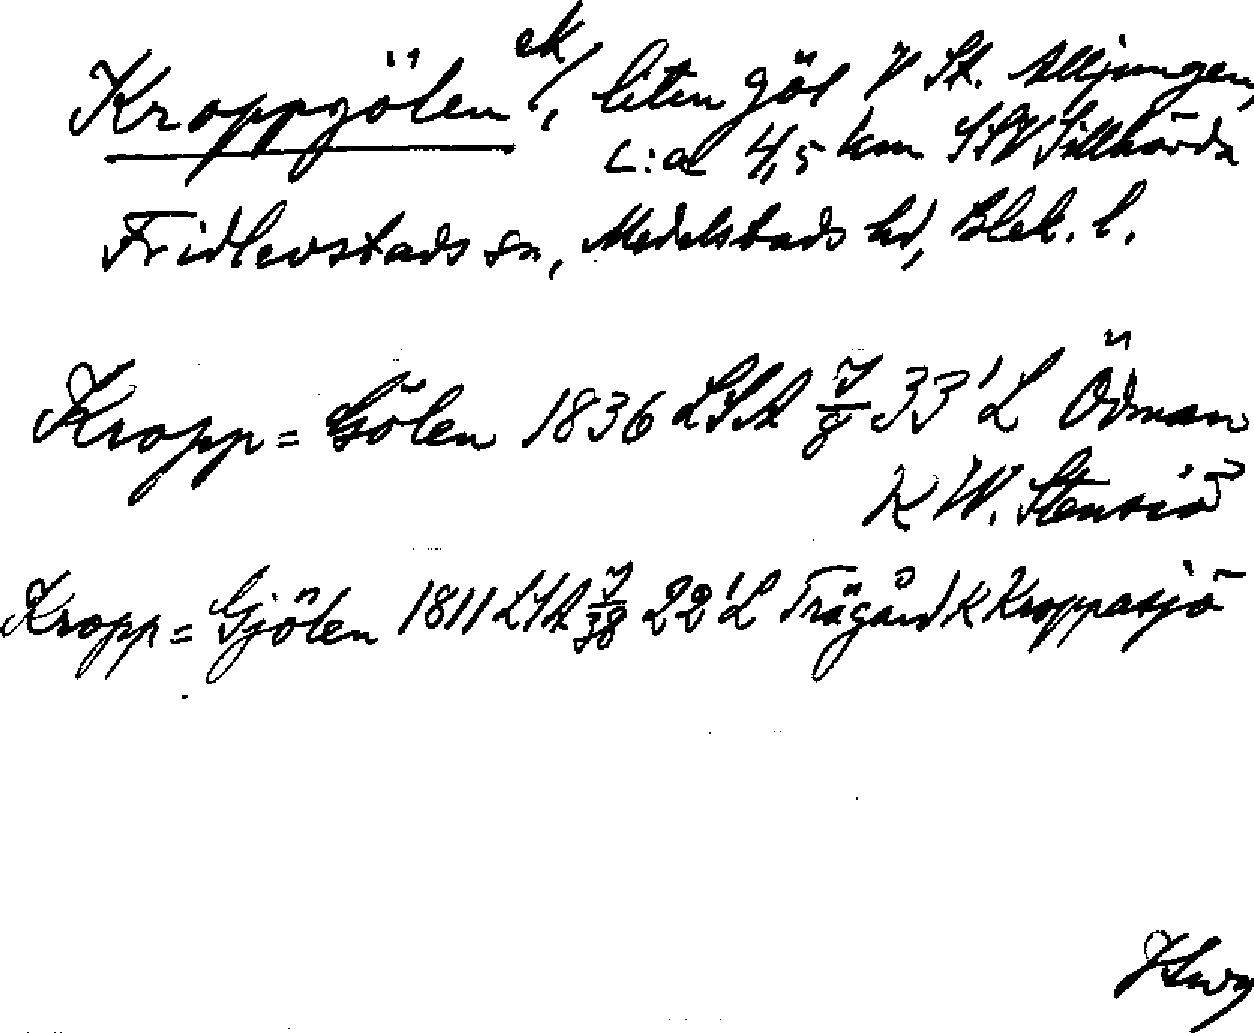 Kroppgölen ek/, liten göl V St. Alljungen,
c:a 4,5 km SSV Tillhörda
Fridlevstads sn, Medelstads hd, Blek. l.
Kropp=Gölen 1836 LSA 7/9 33'L Ödman
K W. Stensjö
Kropp=Gjölen 1811 LSA 7/38 22'L Trägård K Kroppasjö